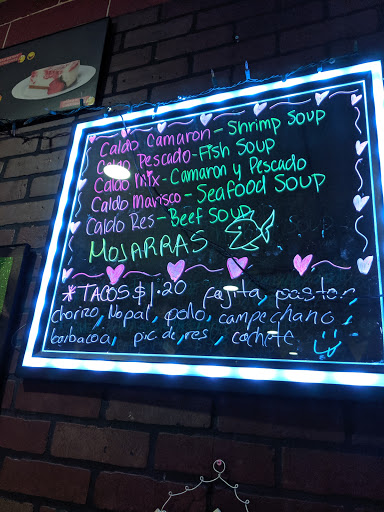 Caldo Camaron - Shrimp Soup
Caldo Pescado - Fish Soup
Caldo Mix - Camaron y Pescado
Caldo Marisco - Seafood Soup
Caldo Res - Beef Soup
MOJARRAS
* TACOS $1.20 fajita, pastor,
chorizo, Nopal, pollo, campechano,
barbacoa, pic de res, cachete